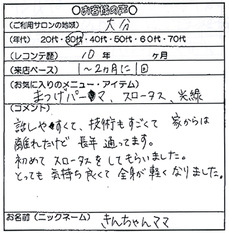 ○お客様の声○
(ご利用サロンの地域) 大分
(年代) 20代・30代・40代・50代・60代・70代
(レコンテ歴) 10年 ヶ月
(来店ペース) 1～2ヶ月に1回
(お気に入りのメニュー・アイテム)
まつげパーマ、スロータス、光線
(コメント)
話しやすくて、技術もすごくて 家からは
離れたけど 長年 通ってます。
初めて スロータスをしてもらいました。
とっても 気持ち良くて 全身が軽くなりました。
お名前(ニックネーム) きんちゃんママ